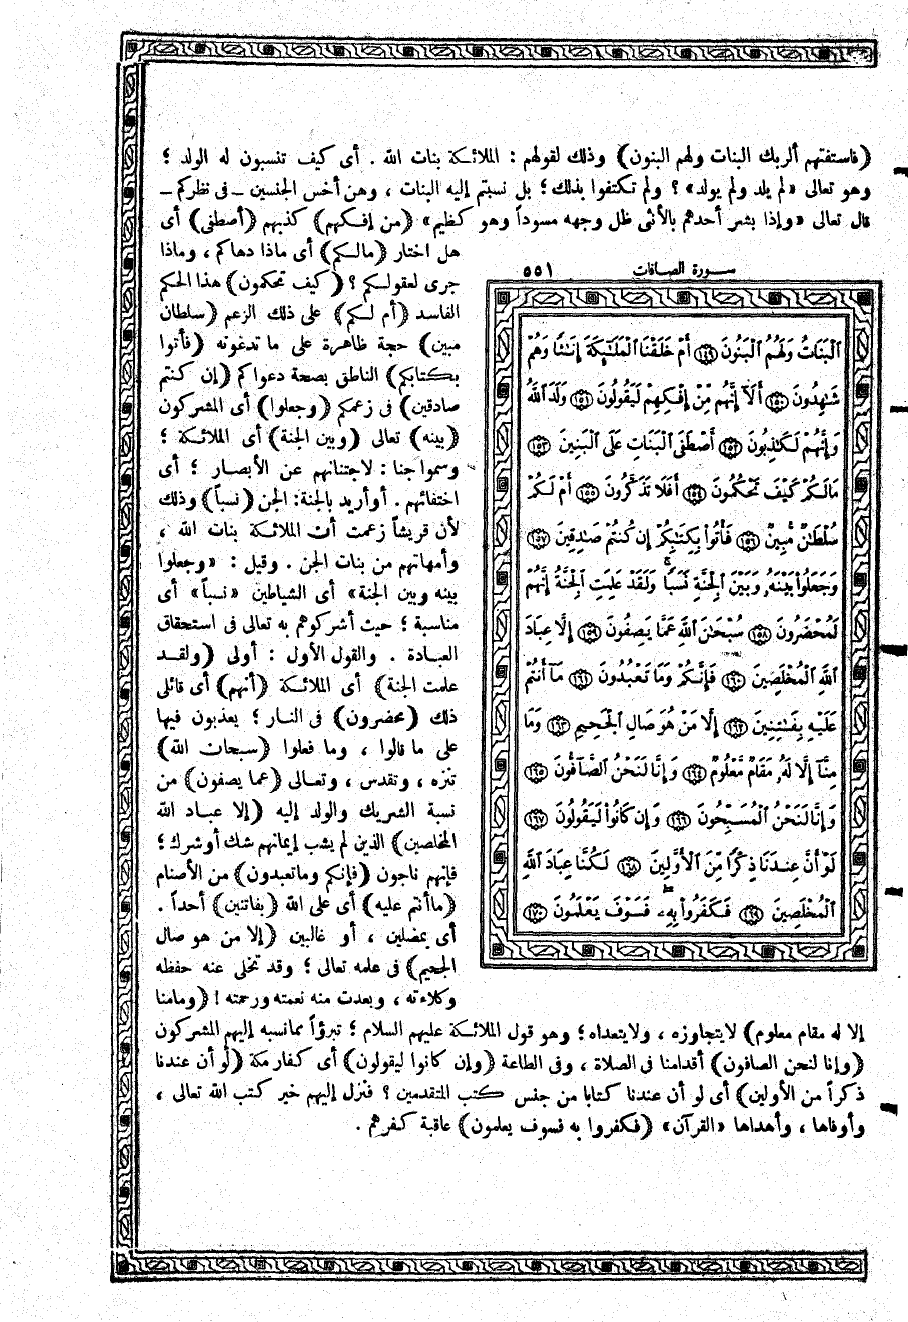 (فاستفتهم ألربك البنات ولهم البنون) وذلك لقولهم : الملائكة بنات الله . أى كيف تنسبون له الولد ؛
وهو تعالى «لم يلد ولم يولد» ؟ ولم تكتفوا بذلك ؛ بل نسبتم إليه البنات ، وهن أخس الجنسين ــ فى نظركم ــ
قال تعالى «وإذا بشر أحدهم بالأنثى ظل وجهه مسوداً وهو كظيم» (من إفكهم) كذبهم (أصطفى) أى
هل اختار (مالكم) أى ماذا دهاكم ، وماذا
جرى لعقولكم ؟ (كيف تحكمون) هذا الحكم
الفاسد (أم لكم) على ذلك الزعم (سلطان
مبين) حجة ظاهرة على ما تدعونه (فأتوا
بكتابكم) الناطق بصحة دعواكم (إن كنتم
صادقين) فى زعمكم (وجعلوا) أى المشركون
(بينه) تعالى (وبين الجنة) أى الملائكة ؛
وسموا جنا : لاجتنانهم عن الأبصار ؛ أى
اختفائهم . أو أريد بالجنة : الجن (نسباً) وذلك
لأن قريشاً زعمت أن الملائكة بنات الله ،
وأمهاتهم من بنات الجن . وقيل : «وجعلوا
بينه وبين الجنة» أى الشياطين «نسباً» أى
مناسبة ؛ حيث أشركوهم به تعالى فى استحقاق
العبادة . والقول الأول : أولى (ولقد
علمت الجنة) أى الملائكة (أنهم) أى قائلى
ذلك (محضرون) فى النار ؛ يعذبون فيها
على ما قالوا ، وما فعلوا (سبحان الله)
تنزه ، وتقدس ، وتعالى (عما يصفون) من
نسبة الشريك والولد إليه (إلا عباد الله
المخلصين) الذين لم يشب إيمانهم شك أو شرك ؛
فإنهم ناجون (فإنكم وما تعبدون) من الأصنام
(ما أنتم عليه) أى على الله (بفاتنين) أحداً .
أى بمضلين ، أو غالبين (إلا من هو صال
الجحيم) فى علمه تعالى ؛ وقد تخلى عنه حفظه
وكلاءته ، وبعدت منه نعمته ورحمته ! (وما منا
سورة الصافات ٥٥١
ٱلْبَنَاتُ وَلَهُمُ ٱلْبَنُونَ ١٤٩ أَمْ خَلَقْنَا ٱلْمَلَٰٓئِكَةَ إِنَٰثًا وَهُمْ
شَٰهِدُونَ ١٥٠ أَلَآ إِنَّهُم مِّنْ إِفْكِهِمْ لَيَقُولُونَ ١٥١ وَلَدَ ٱللَّهُ
وَإِنَّهُمْ لَكَٰذِبُونَ ١٥٢ أَصْطَفَى ٱلْبَنَاتِ عَلَى ٱلْبَنِينَ ١٥٣
مَا لَكُمْ كَيْفَ تَحْكُمُونَ ١٥٤ أَفَلَا تَذَكَّرُونَ ١٥٥ أَمْ لَكُمْ
سُلْطَٰنٌ مُّبِينٌ ١٥٦ فَأْتُوا۟ بِكِتَٰبِكُمْ إِن كُنتُمْ صَٰدِقِينَ ١٥٧
وَجَعَلُوا۟ بَيْنَهُۥ وَبَيْنَ ٱلْجِنَّةِ نَسَبًا ۚ وَلَقَدْ عَلِمَتِ ٱلْجِنَّةُ إِنَّهُمْ
لَمُحْضَرُونَ ١٥٨ سُبْحَٰنَ ٱللَّهِ عَمَّا يَصِفُونَ ١٥٩ إِلَّا عِبَادَ
ٱللَّهِ ٱلْمُخْلَصِينَ ١٦٠ فَإِنَّكُمْ وَمَا تَعْبُدُونَ ١٦١ مَآ أَنتُمْ
عَلَيْهِ بِفَٰتِنِينَ ١٦٢ إِلَّا مَنْ هُوَ صَالِ ٱلْجَحِيمِ ١٦٣ وَمَا
مِنَّآ إِلَّا لَهُۥ مَقَامٌ مَّعْلُومٌ ١٦٤ وَإِنَّا لَنَحْنُ ٱلصَّآفُّونَ ١٦٥
وَإِنَّا لَنَحْنُ ٱلْمُسَبِّحُونَ ١٦٦ وَإِن كَانُوا۟ لَيَقُولُونَ ١٦٧
لَوْ أَنَّ عِندَنَا ذِكْرًا مِّنَ ٱلْأَوَّلِينَ ١٦٨ لَكُنَّا عِبَادَ ٱللَّهِ
ٱلْمُخْلَصِينَ ١٦٩ فَكَفَرُوا۟ بِهِۦ ۖ فَسَوْفَ يَعْلَمُونَ ١٧٠
إلا له مقام معلوم) لا يتجاوزه ، ولا يتعداه ؛ وهو قول الملائكة عليهم السلام ؛ تبرؤاً مما نسبه إليهم المشركون
(وإنا لنحن الصافون) أقدامنا فى الصلاة ، وفى الطاعة (وإن كانوا ليقولون) أى كفار مكة (لو أن عندنا
ذكراً من الأولين) أى لو أن عندنا كتابا من جنس كتب المتقدمين ؟ فنزل إليهم خير كتب الله تعالى ،
وأوفاها ، وأهداها «القرآن» (فكفروا به فسوف يعلمون) عاقبة كفرهم .